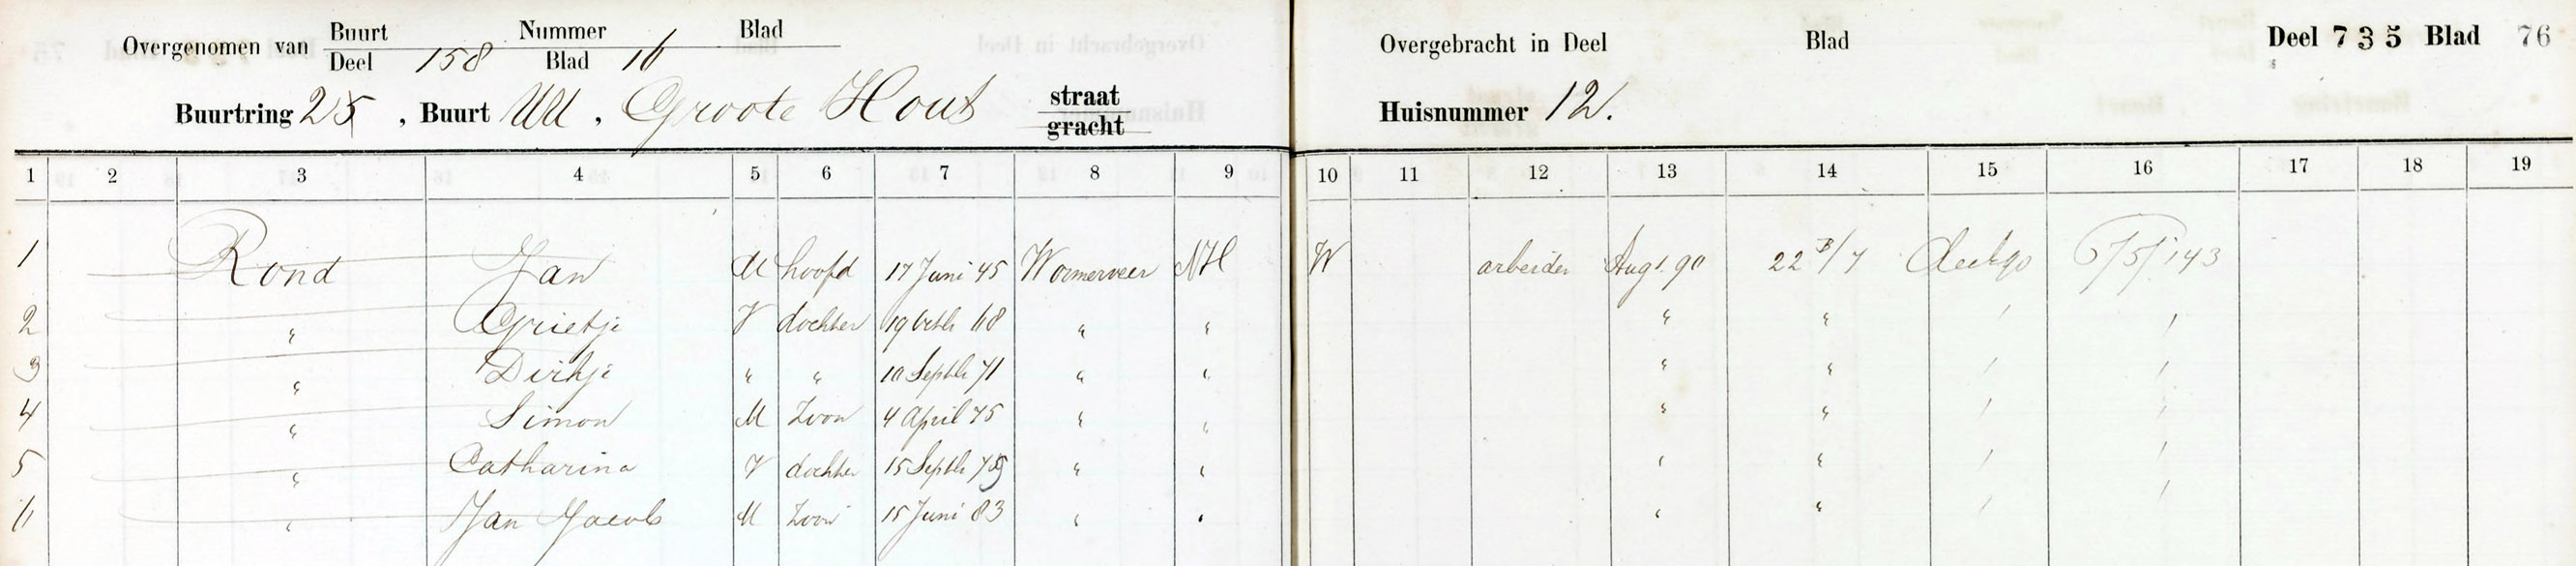 Overgenomen van Buurt Nummer Blad
Deel 158 Blad 16
Buurtring 25, Buurt UU, Groote Hout straat
gracht
Overgebracht in Deel Blad Deel 735 Blad 76
Huisnummer 12.
1 2 3 4 5 6 7 8 9 10 11 12 13 14 15 16 17 18 19
1 Rond Jan M hoofd 17 Juni 45 Wormerveer NH W arbeider Aug. 90 22 3/7
2 " Grietje V dochter 19 Octb 68 " " " "
3 " Dirkje " " 10 Septb 71 " " " "
4 " Simon M Zoon 4 April 75 " " " "
5 " Catharina V dochter 15 Septb 79 " " " "
6 " Jan Jacob M Zoon 15 Juni 83 " " " "